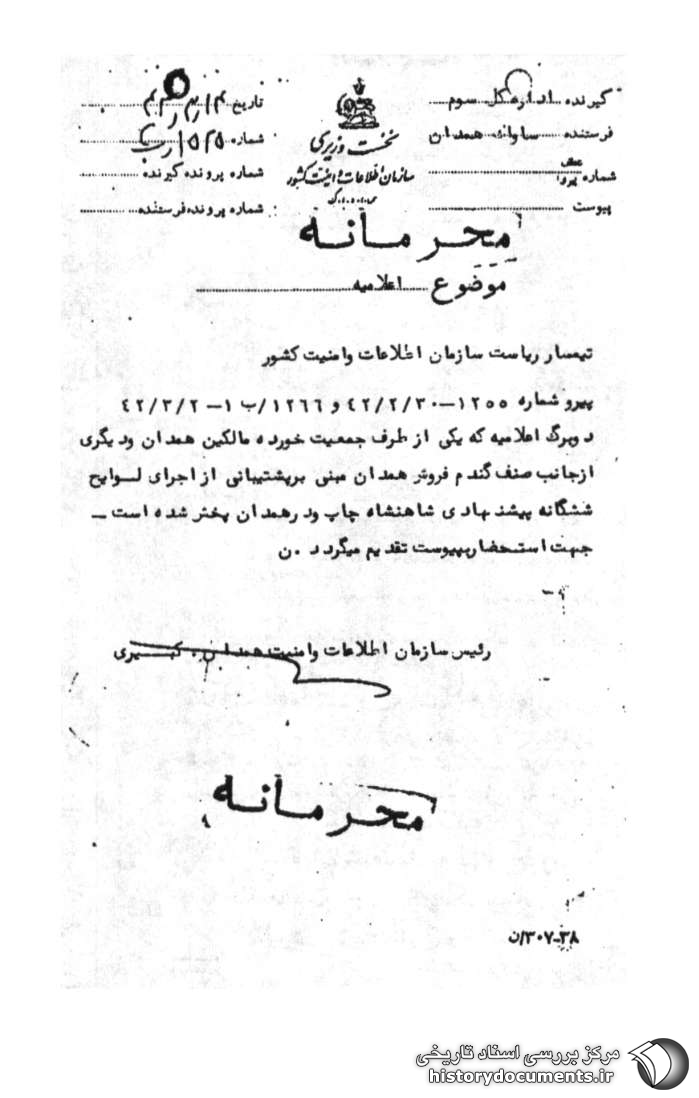 گیرنده ... اداره کل سوم
فرستنده ... ساواک همدان
شماره
پیوست
نخست وزیری
سازمان اطلاعات و امنیت کشور
س.ا.و.ا.ک
تاریخ
شماره
شماره پرونده گیرنده
شماره پرونده فرستنده
محرمانه
موضوع ... اعلامیه
تیمسار ریاست سازمان اطلاعات وامنیت کشور
پیرو شماره ۱۲۵۵-۴۲/۲/۳۰ و ۱۲۶۶/ب ۱-۴۲/۳/۲
دوبرگ اعلامیه که یکی از طرف جمعیت خورده مالکین همدان ودیگری
ازجانب صنف گندم فروش همدان مبنی برپشتیبانی از اجرای لوایح
ششگانه پیشنهادی شاهنشاه چاپ ودرهمدان پخش شده است -
جهت استحضار بپیوست تقدیم میگردد .ن
رئیس سازمان اطلاعات وامنیت همدان.
محرمانه
۳۸-۳۰۷/ن
مرکز بررسی اسناد تاریخی
historydocuments.ir